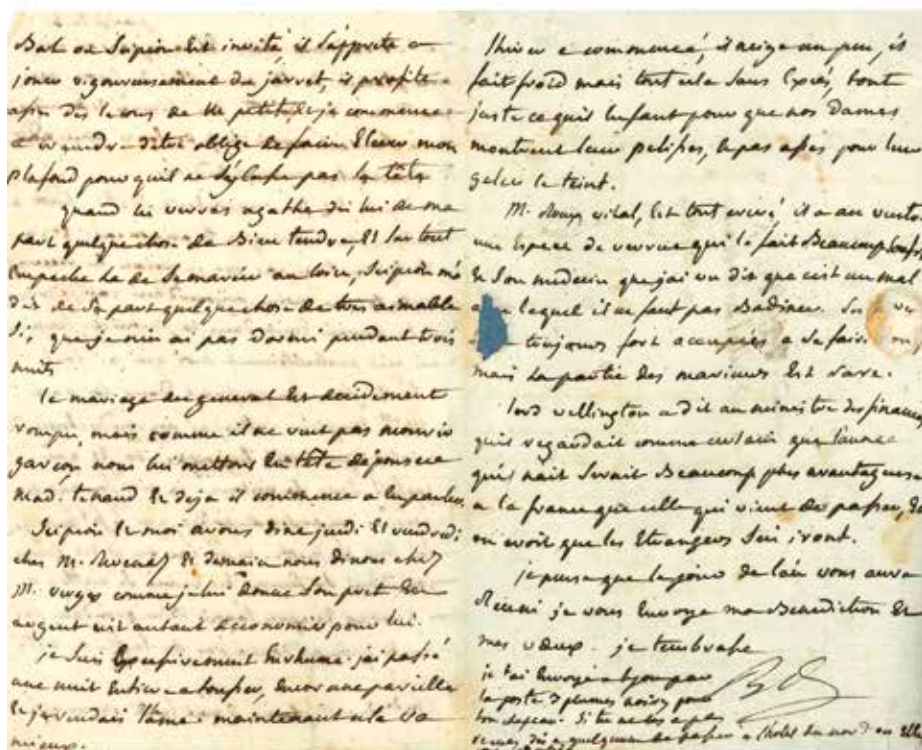 Bal où Scipion Est invité, il s'apprete a
jouer vigoureusement du jarret, il profite
assez des lecons de Mr petit et je commence
a craindre d'etre obligé de faire Elever mon
plafond pour qu'il ne s'y casse pas la tête
quand tu verras agathe dis lui de ma
part quelque chose de Bien tendre, Et sur tout
Empeche la de se marier au loin, Scipion m'a
dit de sa part quelque chose de tres aimable
si, que je n'en ai pas dormi pendant trois
nuits
le mariage du general Est decidement
rompu, mais comme il ne veut pas mourir
garçon nous lui mettons En tête d'épouser
Mad. tenaud Et deja il commence a En parler.
Scipion Et moi avons diné jeudi Et vendredi
chez M. Et demain nous dinons chez
M. verges comme je lui donne Son port En
argent c'est autant d'economisé pour lui.
je Suis Excessivement Enrhumé. j'ai passé
une nuit Entiere a tousser, Encor une pareille
Et je rendais l'ame: maintenant cela va
mieux.
l'hiver a commencé, il neige un peu, il
fait froid mais tout cela Sans Excés, tout
juste ce qu'il En faut pour que nos Dames
montrent leur pelisses, Et pas assez pour leur
geler le teint.
M. vital, Est tout il a au
une Espece de verrue qui le fait Beaucoup
Et Son medecin que j'ai vu dit que c'est un mal
lequel il ne faut pas Badiner. Ses
toujours fort occupées a Se faire
mais la partie des Est rare.
lord wellington a dit au ministre des finances
qu'il regardait comme certain que l'année
qui nait Serait Beaucoup plus avantageuse
a la france que celle qui vient de passer, Et
on croit que les Etrangers S'en iront.
je pense que le jour de l'an vous aura
Reuni je vous Envoye ma Benediction Et
mes vœux. je t'embrasse
je t'ai Envoyé a Lyon par
la poste 3 plumes noires pour
ton chapeau. Si tu ne les a pas
dis a quelqu'un de passer a l'hotel du nord ou Elle